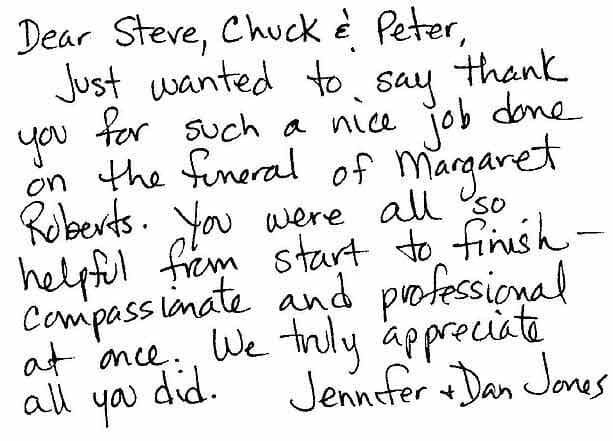 Dear Steve, Chuck & Peter,
Just wanted to say thank
you for such a nice job done
on the funeral of Margaret
Roberts. You were all so
helpful from start to finish –
compassionate and professional
at once. We truly appreciate
all you did. Jennifer + Dan Jones